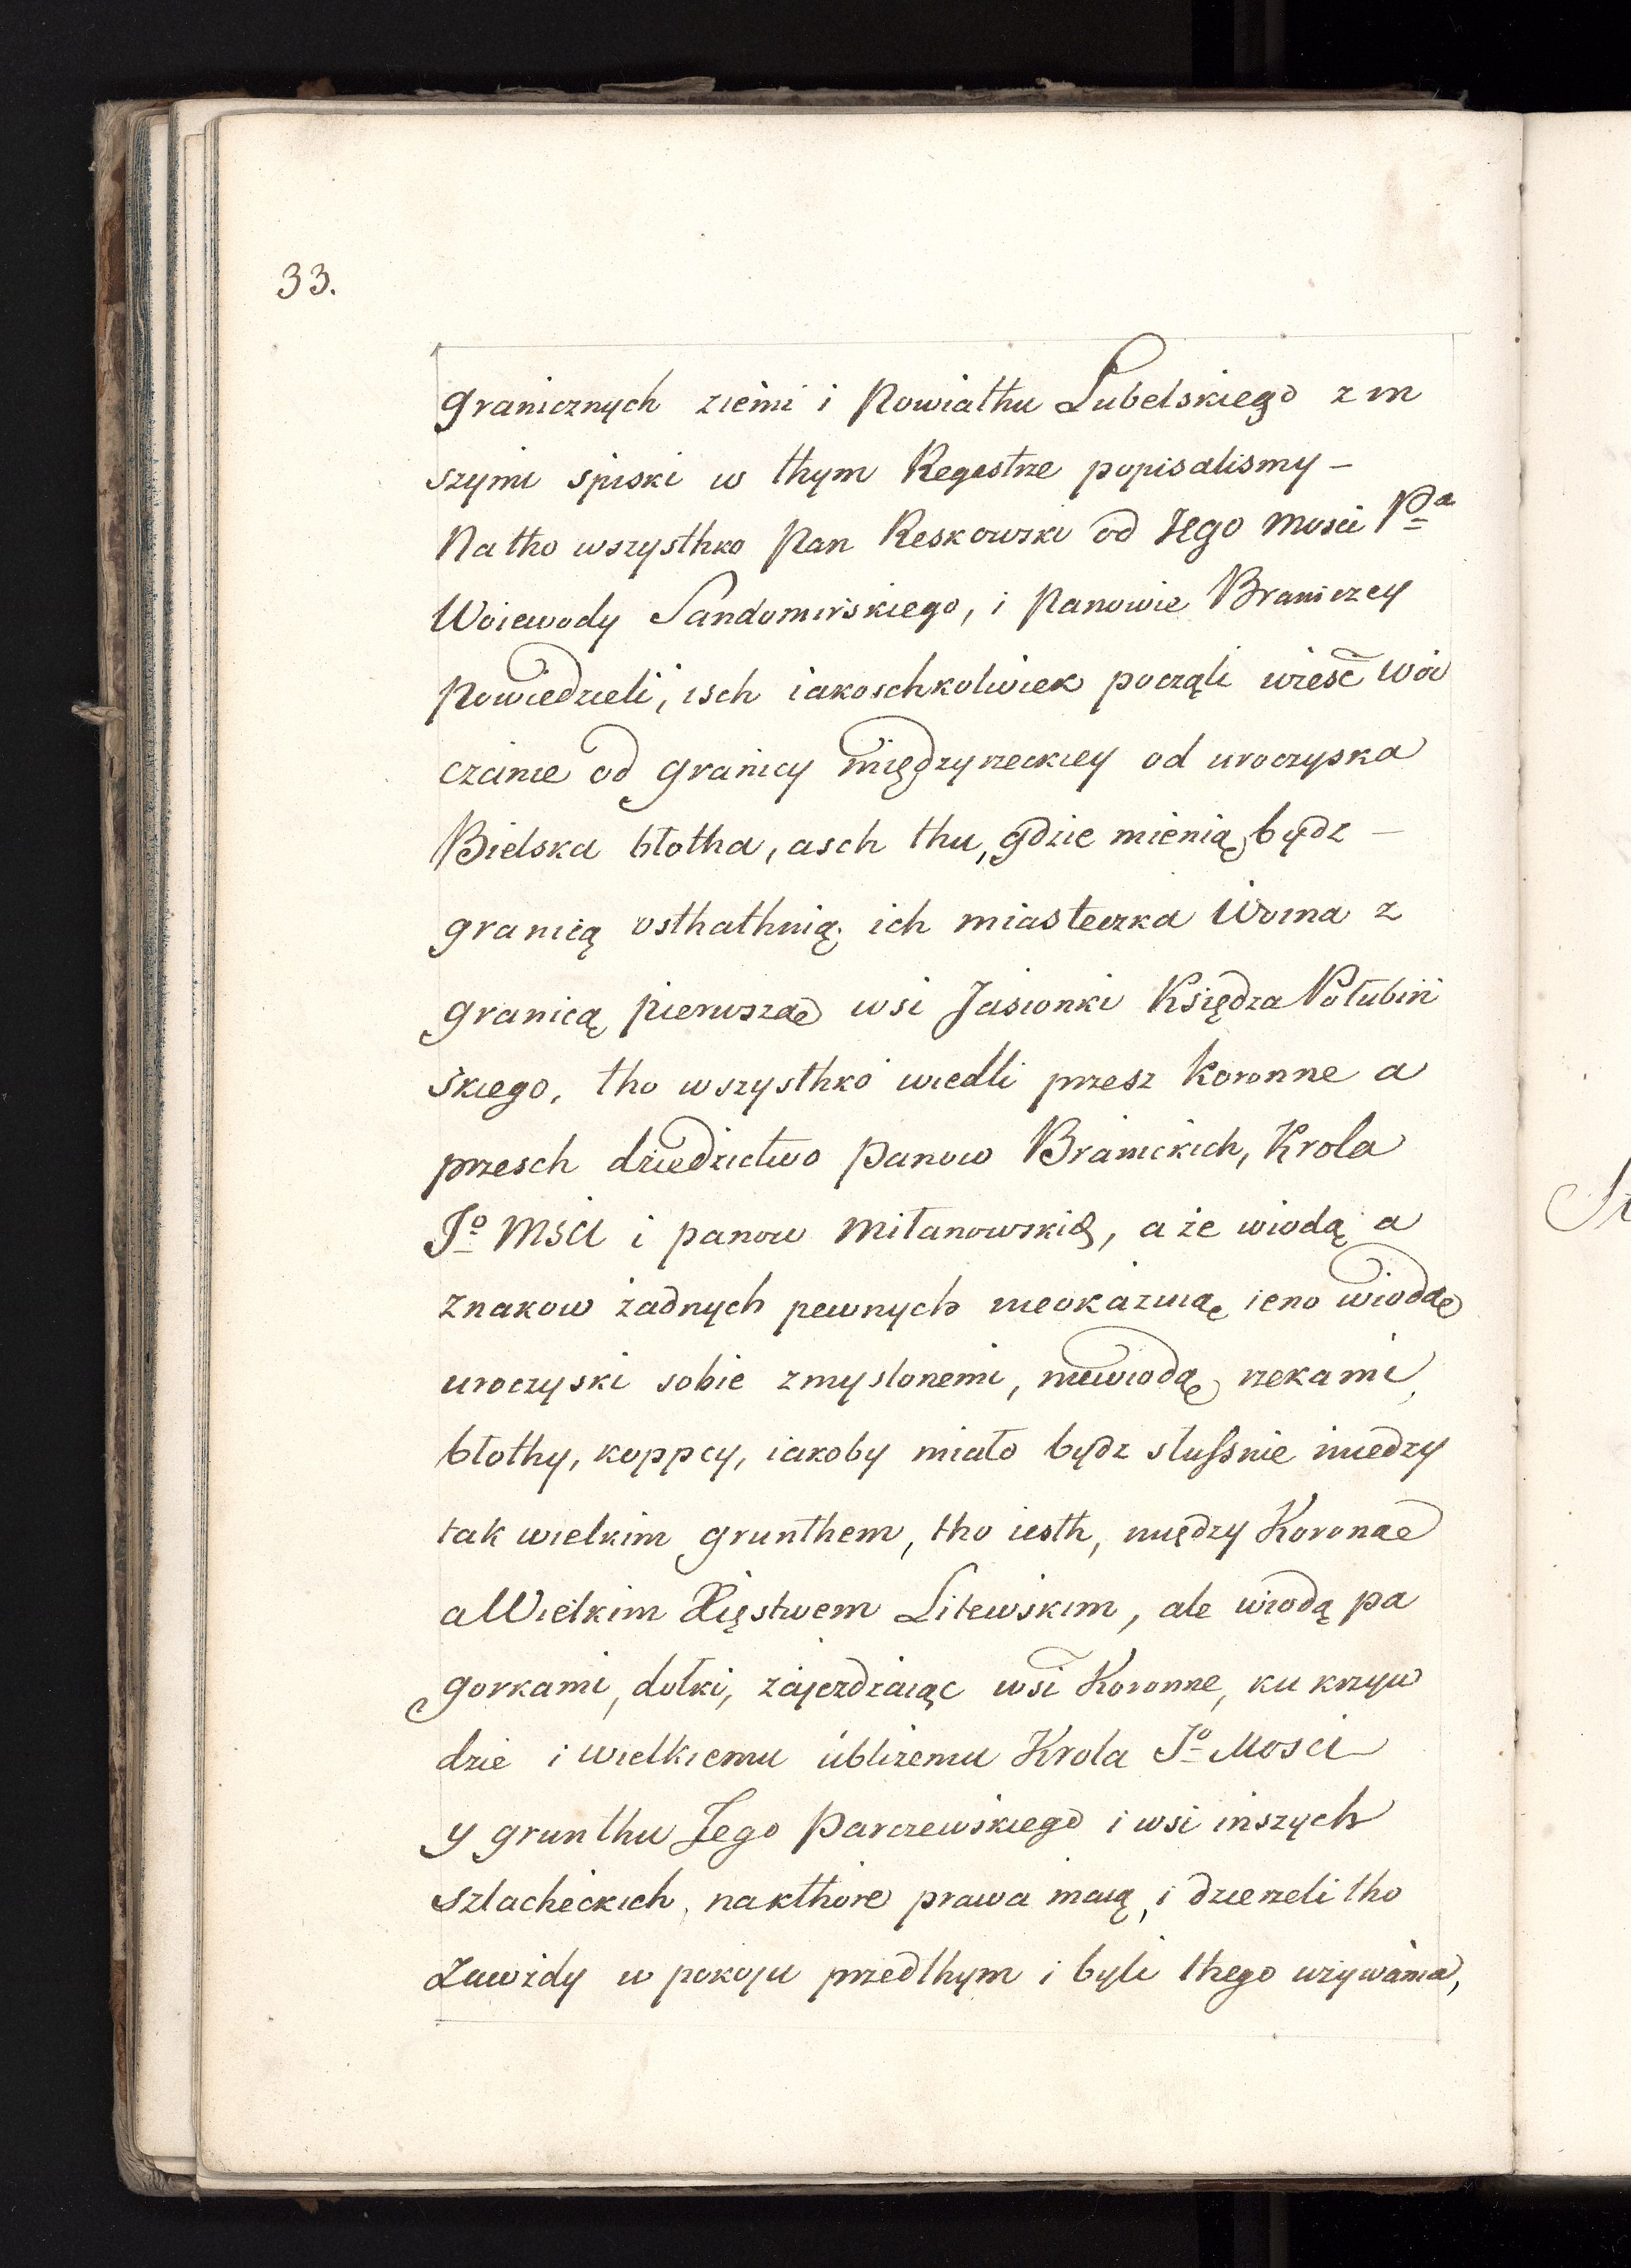 33.
granicznych ziemi i Powiathu Lubelskiego z in
szymi spiski w thym Regestrze popisalismy –
Na tho wszysthko Pan Reskowski od Jego Mosci Pa
Woiewody Sandomirskiego, i Panowie Braniczcy
Powiedzieli, isch iakoschkolwiek poczęli wiesć Wół
czanie od granicy międzyrzeckiey od uroczyska
Bielska błotha, asch thu, gdzie mienią bydz –
granicą osthathnią ich miasteczka Woina z
granicą pierwszą wsi Jasionki Księdza Połubiń
skiego, tho wszysthko wiedli przesz Koronne a
przesch dziedzictwo Panow Branickich, Krola
Jo Msci i panow Milanowskich, a że wiodą a
znakow żadnych pewnych nieokazuią, ieno wiodą
uroczyski sobie zmyslonemi, niewiodą rzekami,
błothy, koppcy, iakoby miało bydz słussnie miedzy
tak wielkim grunthem, tho iesth, między Koroną
a Wielkim Xięstwem Litewskim, ale wiodą pa
gorkami, dołki, zajezdzaiąc wsi Koronne, ku krzyw
dzie i wielkiemu ubliżeniu Krola Jo Mosci
y grunthu Jego Parczewskiego i wsi inszych
szlacheckich, nakthore prawa maią, i dzierzeli tho
Zawżdy w pokoju przedthym i byli thego używania,
St